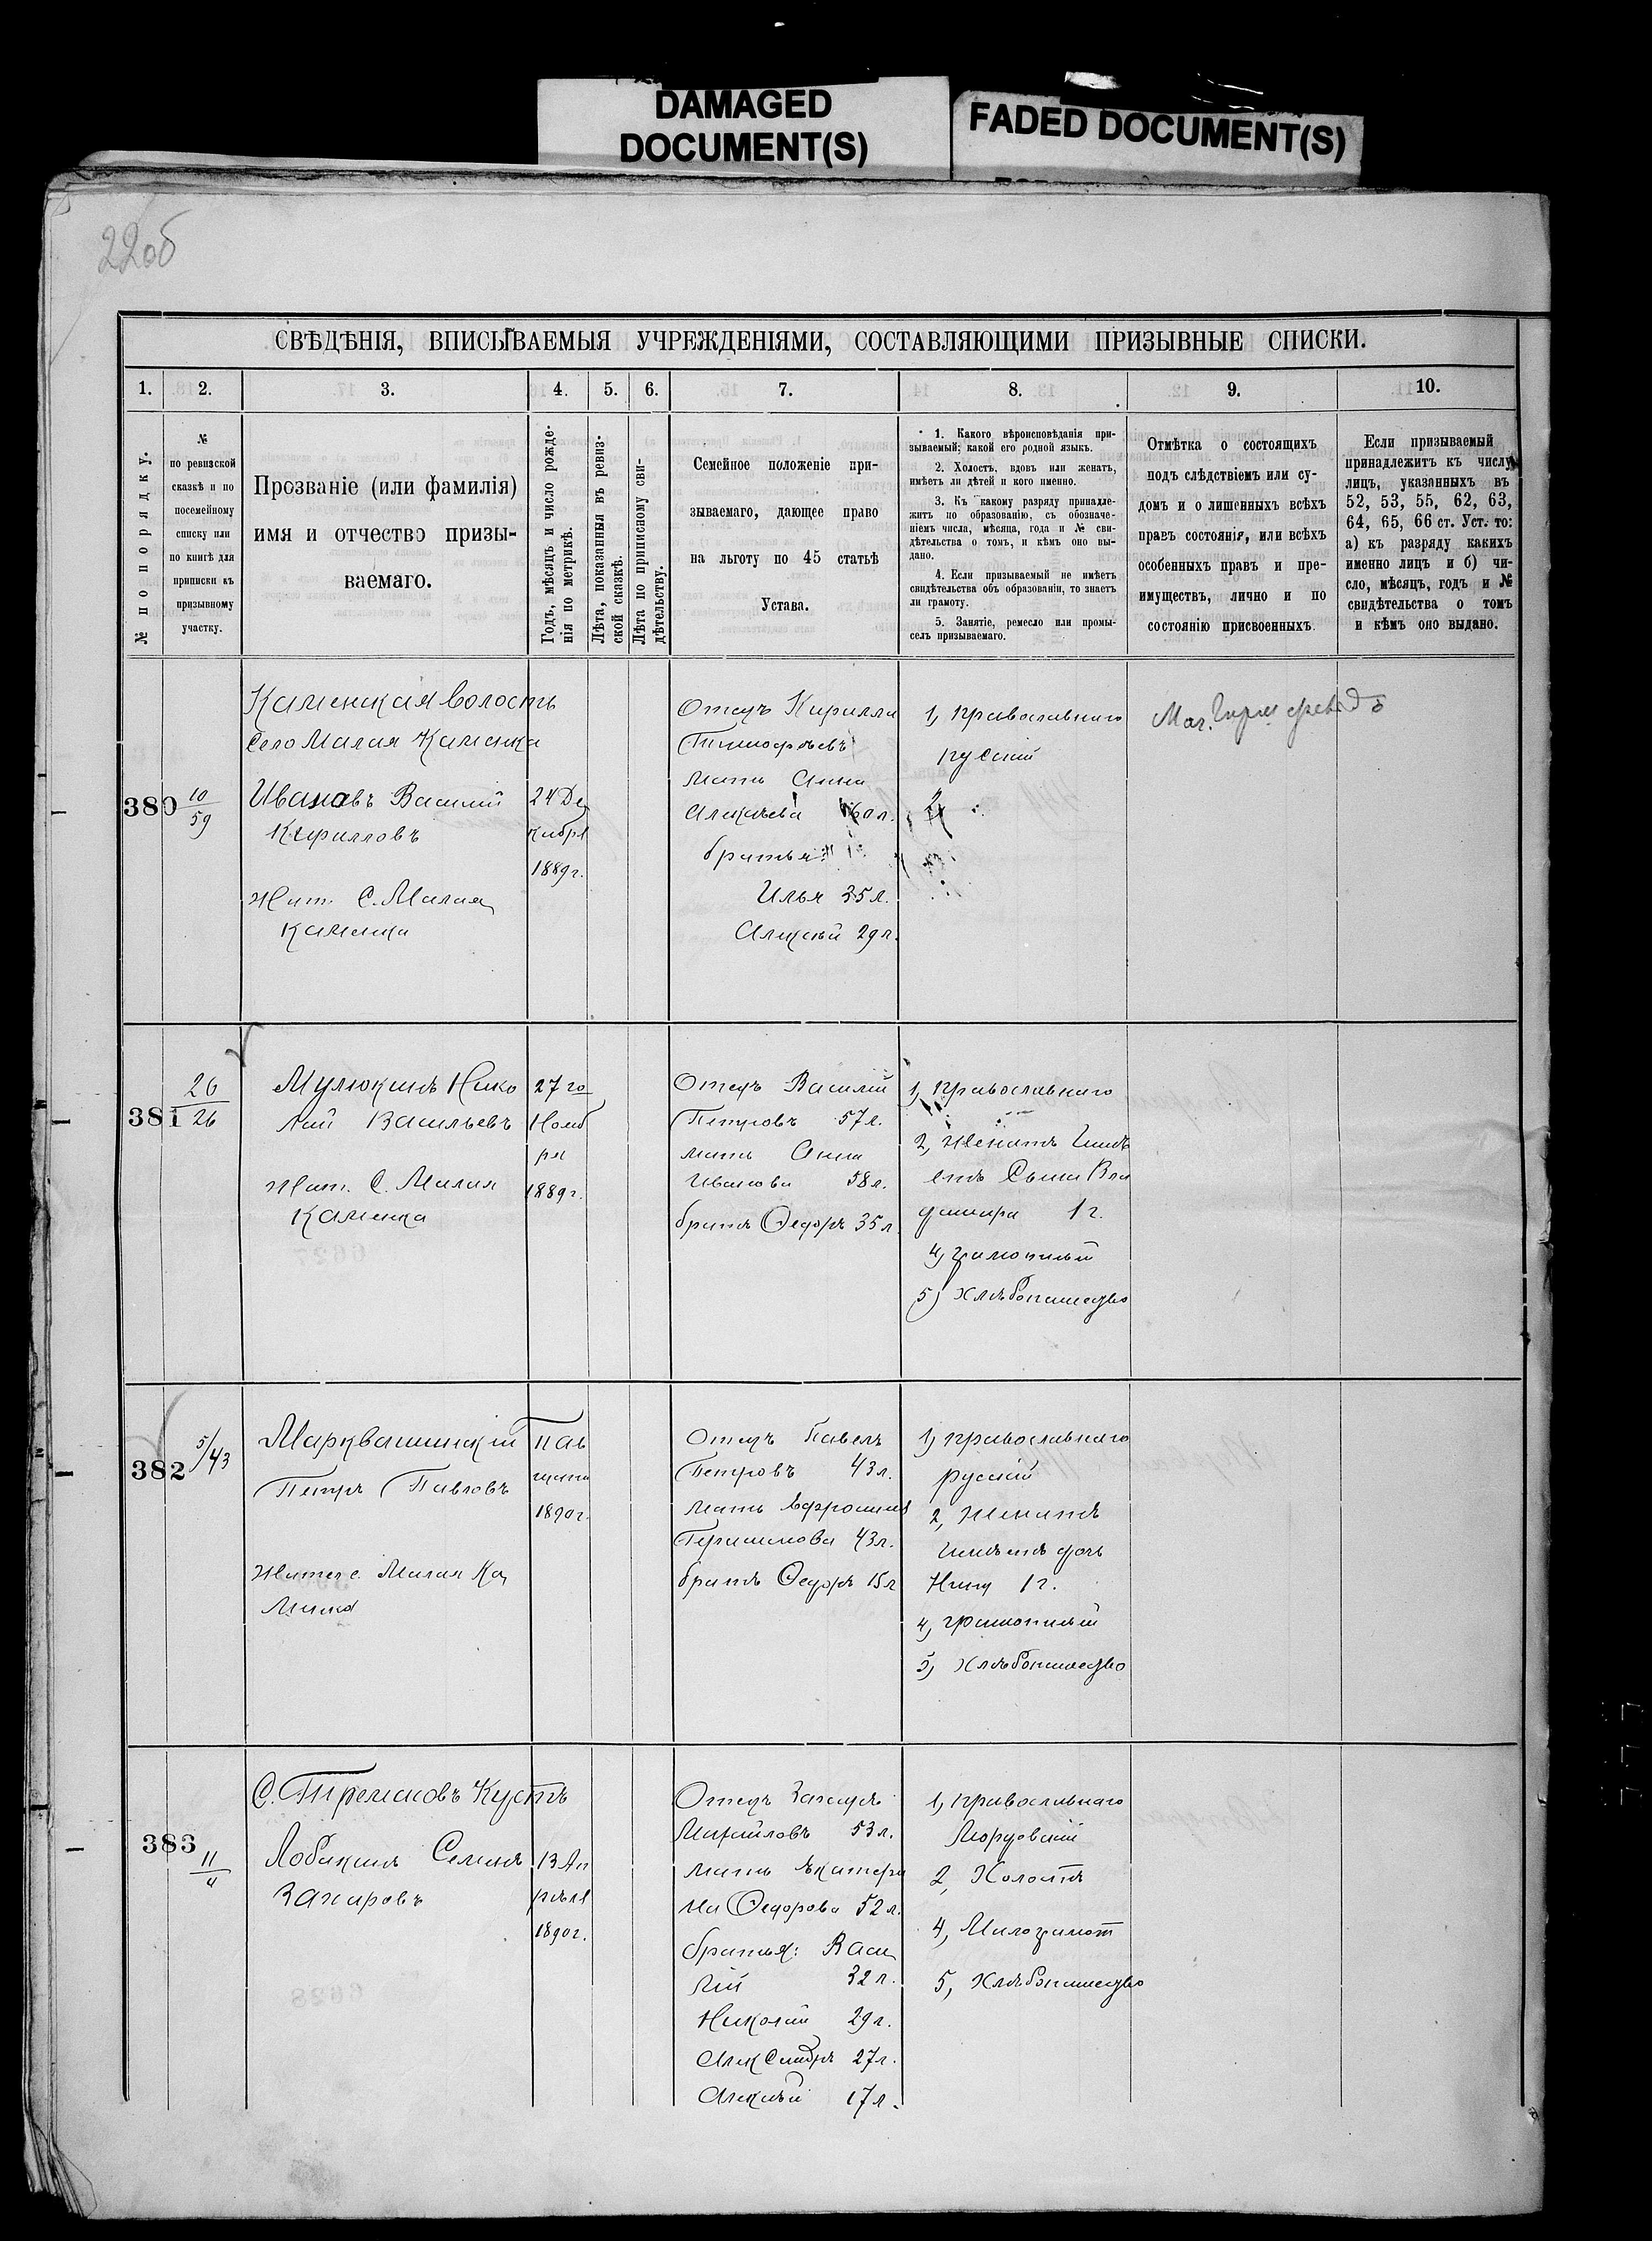 DAMAGED
DOCUMENT(S)
FADED DOCUMENT(S)
22об
СВѢДѢНІЯ, ВПИСЫВАЕМЫЯ УЧРЕЖДЕНІЯМИ, СОСТАВЛЯЮЩИМИ ПРИЗЫВНЫЕ СПИСКИ.
1. 2. 3. 4. 5. 6. 7. 8. 9. 10.
№ по порядку.
№
по ревизской
сказкѣ и по
посемейному
списку или
по книгѣ для
приписки къ
призывному
участку.
Прозваніе (или фамилія)
имя и отчество призы-
ваемаго.
Годъ, мѣсяцъ и число рожде-
нія по метрикѣ.
Лѣта, показанныя въ ревиз-
ской сказкѣ.
Лѣта по приписному сви-
дѣтельству.
Семейное положеніе при-
зываемаго, дающее право
на льготу по 45 статьѣ
Устава.
1. Какого вѣроисповѣданія при-
зываемый; какой его родной языкъ.
2. Холостъ, вдовъ или женатъ,
имѣетъ ли дѣтей и кого именно.
3. Къ какому разряду принадле-
житъ по образованію, съ обозначе-
ніемъ числа, мѣсяца, года и № сви-
дѣтельства о томъ, и кѣмъ оно вы-
дано.
4. Если призываемый не имѣетъ
свидѣтельства объ образованіи, то знаетъ
ли грамоту.
5. Занятіе, ремесло или промы-
селъ призываемаго.
Отмѣтка о состоящихъ
подъ слѣдствіемъ или су-
домъ и о лишенныхъ всѣхъ
правъ состоянія, или всѣхъ
особенныхъ правъ и пре-
имуществъ, лично и по
состоянію присвоенныхъ.
Если призываемый
принадлежитъ къ числу
лицъ, указанныхъ въ
52, 53, 55, 62, 63,
64, 65, 66 ст. Уст. то:
а) къ разряду какихъ
именно лицъ и б) чи-
сло, мѣсяцъ, годъ и №
свидѣтельства о томъ
и кѣмъ оно выдано.
Каменская волость
Село Малая Каменка
380
10/59
Ивановъ Василій
Кирилловъ
Жит. С. Малая
Каменка
24 Де
кабря
1889 г.
Отецъ Кирилла
Тимофѣевъ
мать Анна
Алексѣева 60 л.
братья:
Илья 35 л.
Алексѣй 29 л.
1, православнаго
русскій
2,
381
26/26
Мулюкинъ Нико
лай Васильевъ
Жит. С. Малая
Каменка
27 го
Нояб
ря
1889 г.
Отецъ Василій
Петровъ 57 л.
мать Анна
Иванова 58 л.
братъ Ѳедоръ 35 л.
1, православнаго
2, женатъ имѣ
етъ сына Вла
диміра 1 г.
4, грамотный
5) хлѣбопашество
382
5/43
Марквашинскій
Петръ Павловъ
Жител с. Малая Ка
менка
11 Ав
густа
1890 г.
Отецъ Павелъ
Петровъ 43 л.
мать Ефросинія
Герасимова 43 л.
братъ Ѳедоръ 15 л
1, православнаго
русскій
2, женатъ
имѣетъ дочь
Нину 1 г.
4, грамотный
5, хлѣбопашество
С. Термаковъ Кустъ
383
11/4
Лобакинъ Семенъ
Захаровъ
13 Ап
рѣля
1890 г.
Отецъ Захаръ
Михайловъ 53 л.
мать Екатери
на Ѳедорова 52 л.
братья: Васи
лій 32 л.
Николай 29 л.
Александръ 27 л.
Алексѣй 17 л.
1, православнаго
Мордовскій
2, Холостъ
4, Малограмот
5, хлѣбопашество